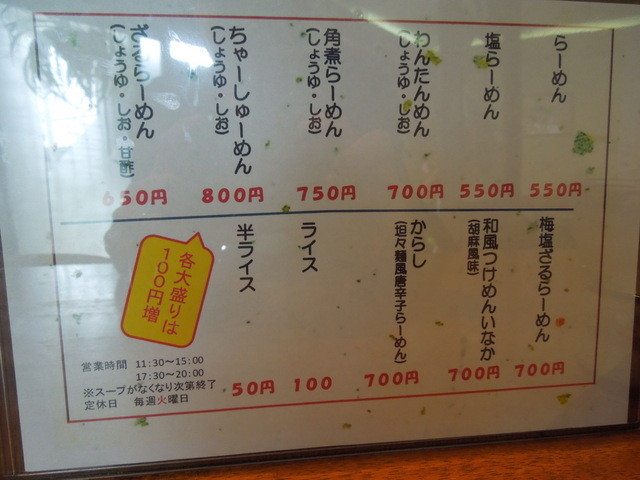 らーめん
550円
塩らーめん
550円
わんたんめん
(しょうゆ・しお)
700円
角煮らーめん
(しょうゆ・しお)
750円
ちゃーしゅーめん
(しょうゆ・しお)
800円
ざるらーめん
(しょうゆ・しお・甘酢)
650円
梅塩ざるらーめん
700円
和風つけめんいなか
(胡麻風味)
700円
からし
(坦々麺風唐辛子らーめん)
700円
ライス
100
半ライス
50円
各大盛りは
100円増
営業時間 11:30～15:00
17:30～20:00
※スープがなくなり次第終了
定休日 毎週火曜日